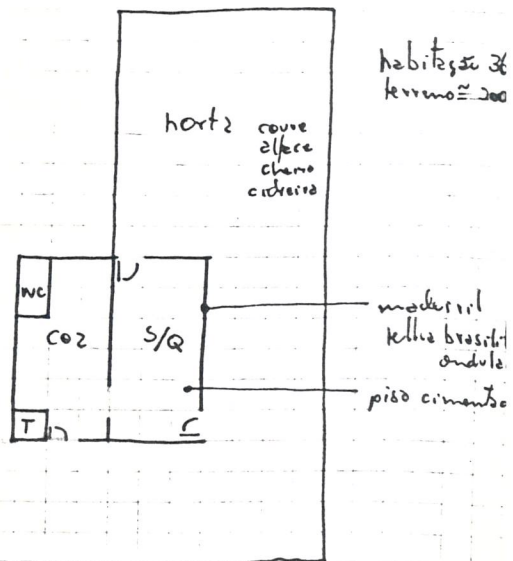 habitação 36
terreno ≅ 200
horta
couve
alface
cheiro
cidreira
WC
COZ
S/Q
madeirit
telha brasilit
ondula
piso cimenta
T